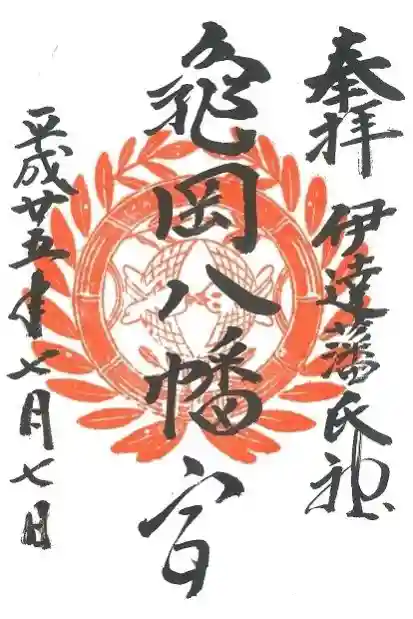 奉拝 伊達藩氏神
亀岡八幡宮
平成廿五年七月七日